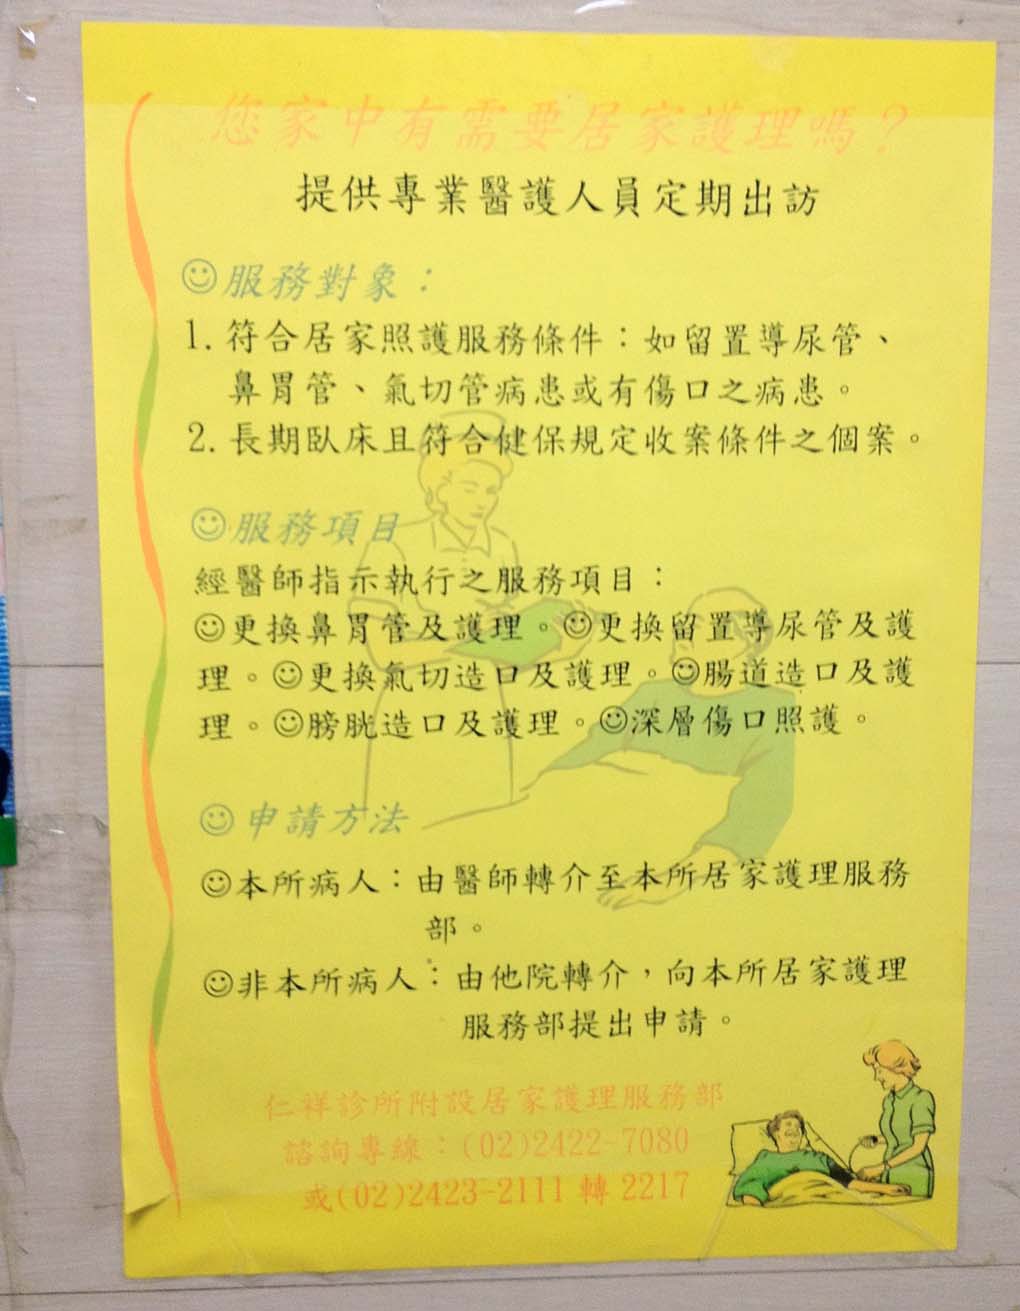 您家中有需要居家護理嗎？
提供專業醫護人員定期出訪
☺服務對象：
1. 符合居家照護服務條件：如留置導尿管、
鼻胃管、氣切管病患或有傷口之病患。
2. 長期臥床且符合健保規定收案條件之個案。
☺服務項目
經醫師指示執行之服務項目：
☺更換鼻胃管及護理。☺更換留置導尿管及護
理。☺更換氣切造口及護理。☺腸道造口及護
理。☺膀胱造口及護理。☺深層傷口照護。
☺申請方法
☺本所病人：由醫師轉介至本所居家護理服務
部。
☺非本所病人：由他院轉介，向本所居家護理
服務部提出申請。
仁祥診所附設居家護理服務部
諮詢專線：(02)2422-7080
或(02)2423-2111 轉 2217